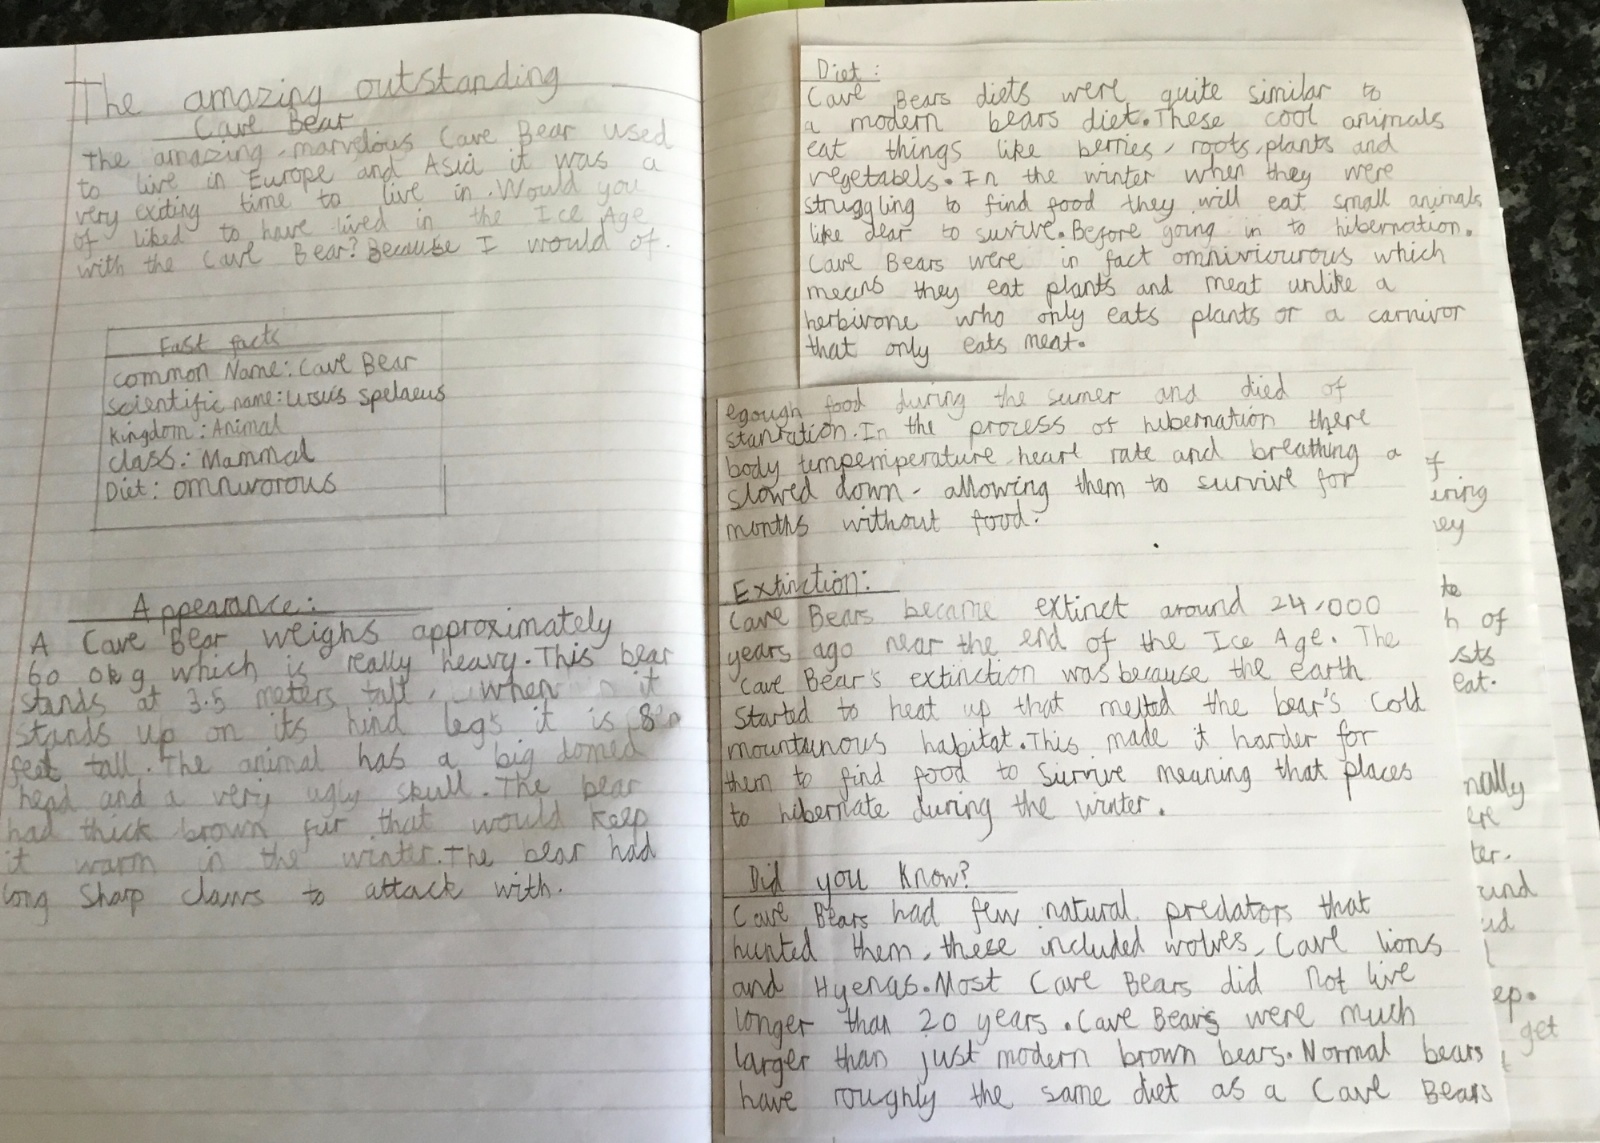 The amazing outstanding
Cave Bear
The amazing, marvelous Cave Bear used
to live in Europe and Asia it was a
very exciting time to live in. Would you
of liked to have lived in the Ice Age
with the Cave Bear? Because I would of.
Fast facts
Common Name: Cave Bear
Scientific name: Ursus Spelaeus
Kingdom: Animal
Class: Mammal
Diet: omnivorous
Appearance:
A Cave Bear weighs approximately
600kg which is really heavy. This bear
stands at 3.5 meters tall, when it
stands up on its hind legs it is
feet tall. The animal has a big domed
head and a very ugly skull. The bear
had thick brown fur that would keep
it warm in the winter. The bear had
long sharp claws to attack with.
Diet:
Cave Bears diets were quite similar to
a modern bears diet. These cool animals
eat things like berries, roots, plants and
vegetabels. In the winter when they were
struggling to find food they will eat small animals
like dear to survive. Before going in to hibernation.
Cave Bears were in fact omniviourous which
means they eat plants and meat unlike a
herbivone who only eats plants or a carnivor
that only eats meat.
egough food during the sumer and died of
starvation. In the process of hibernation there
body tempemperature, heart rate and breathing a
slowed down - allowing them to survive for
months without food.
Extinction:
Cave Bears became extinct around 24,000
years ago near the end of the Ice Age. The
Cave Bear's extinction was because the earth
started to heat up that melted the bear's cold
mountunous habitat. This made it harder for
them to find food to survive meaning that places
to hibernate during the winter.
Did you know?
Cave Bears had few natural predators that
hunted them, these included wolves, Cave lions
and Hyenas. Most Cave Bears did not live
longer than 20 years. Cave Bears were much
larger than just modern brown bears. Normal bears
have roughly the same diet as a Cave Bears
f
ering
ey
te
h of
sts
eat.
nally
ere
ter.
und
ep.
get